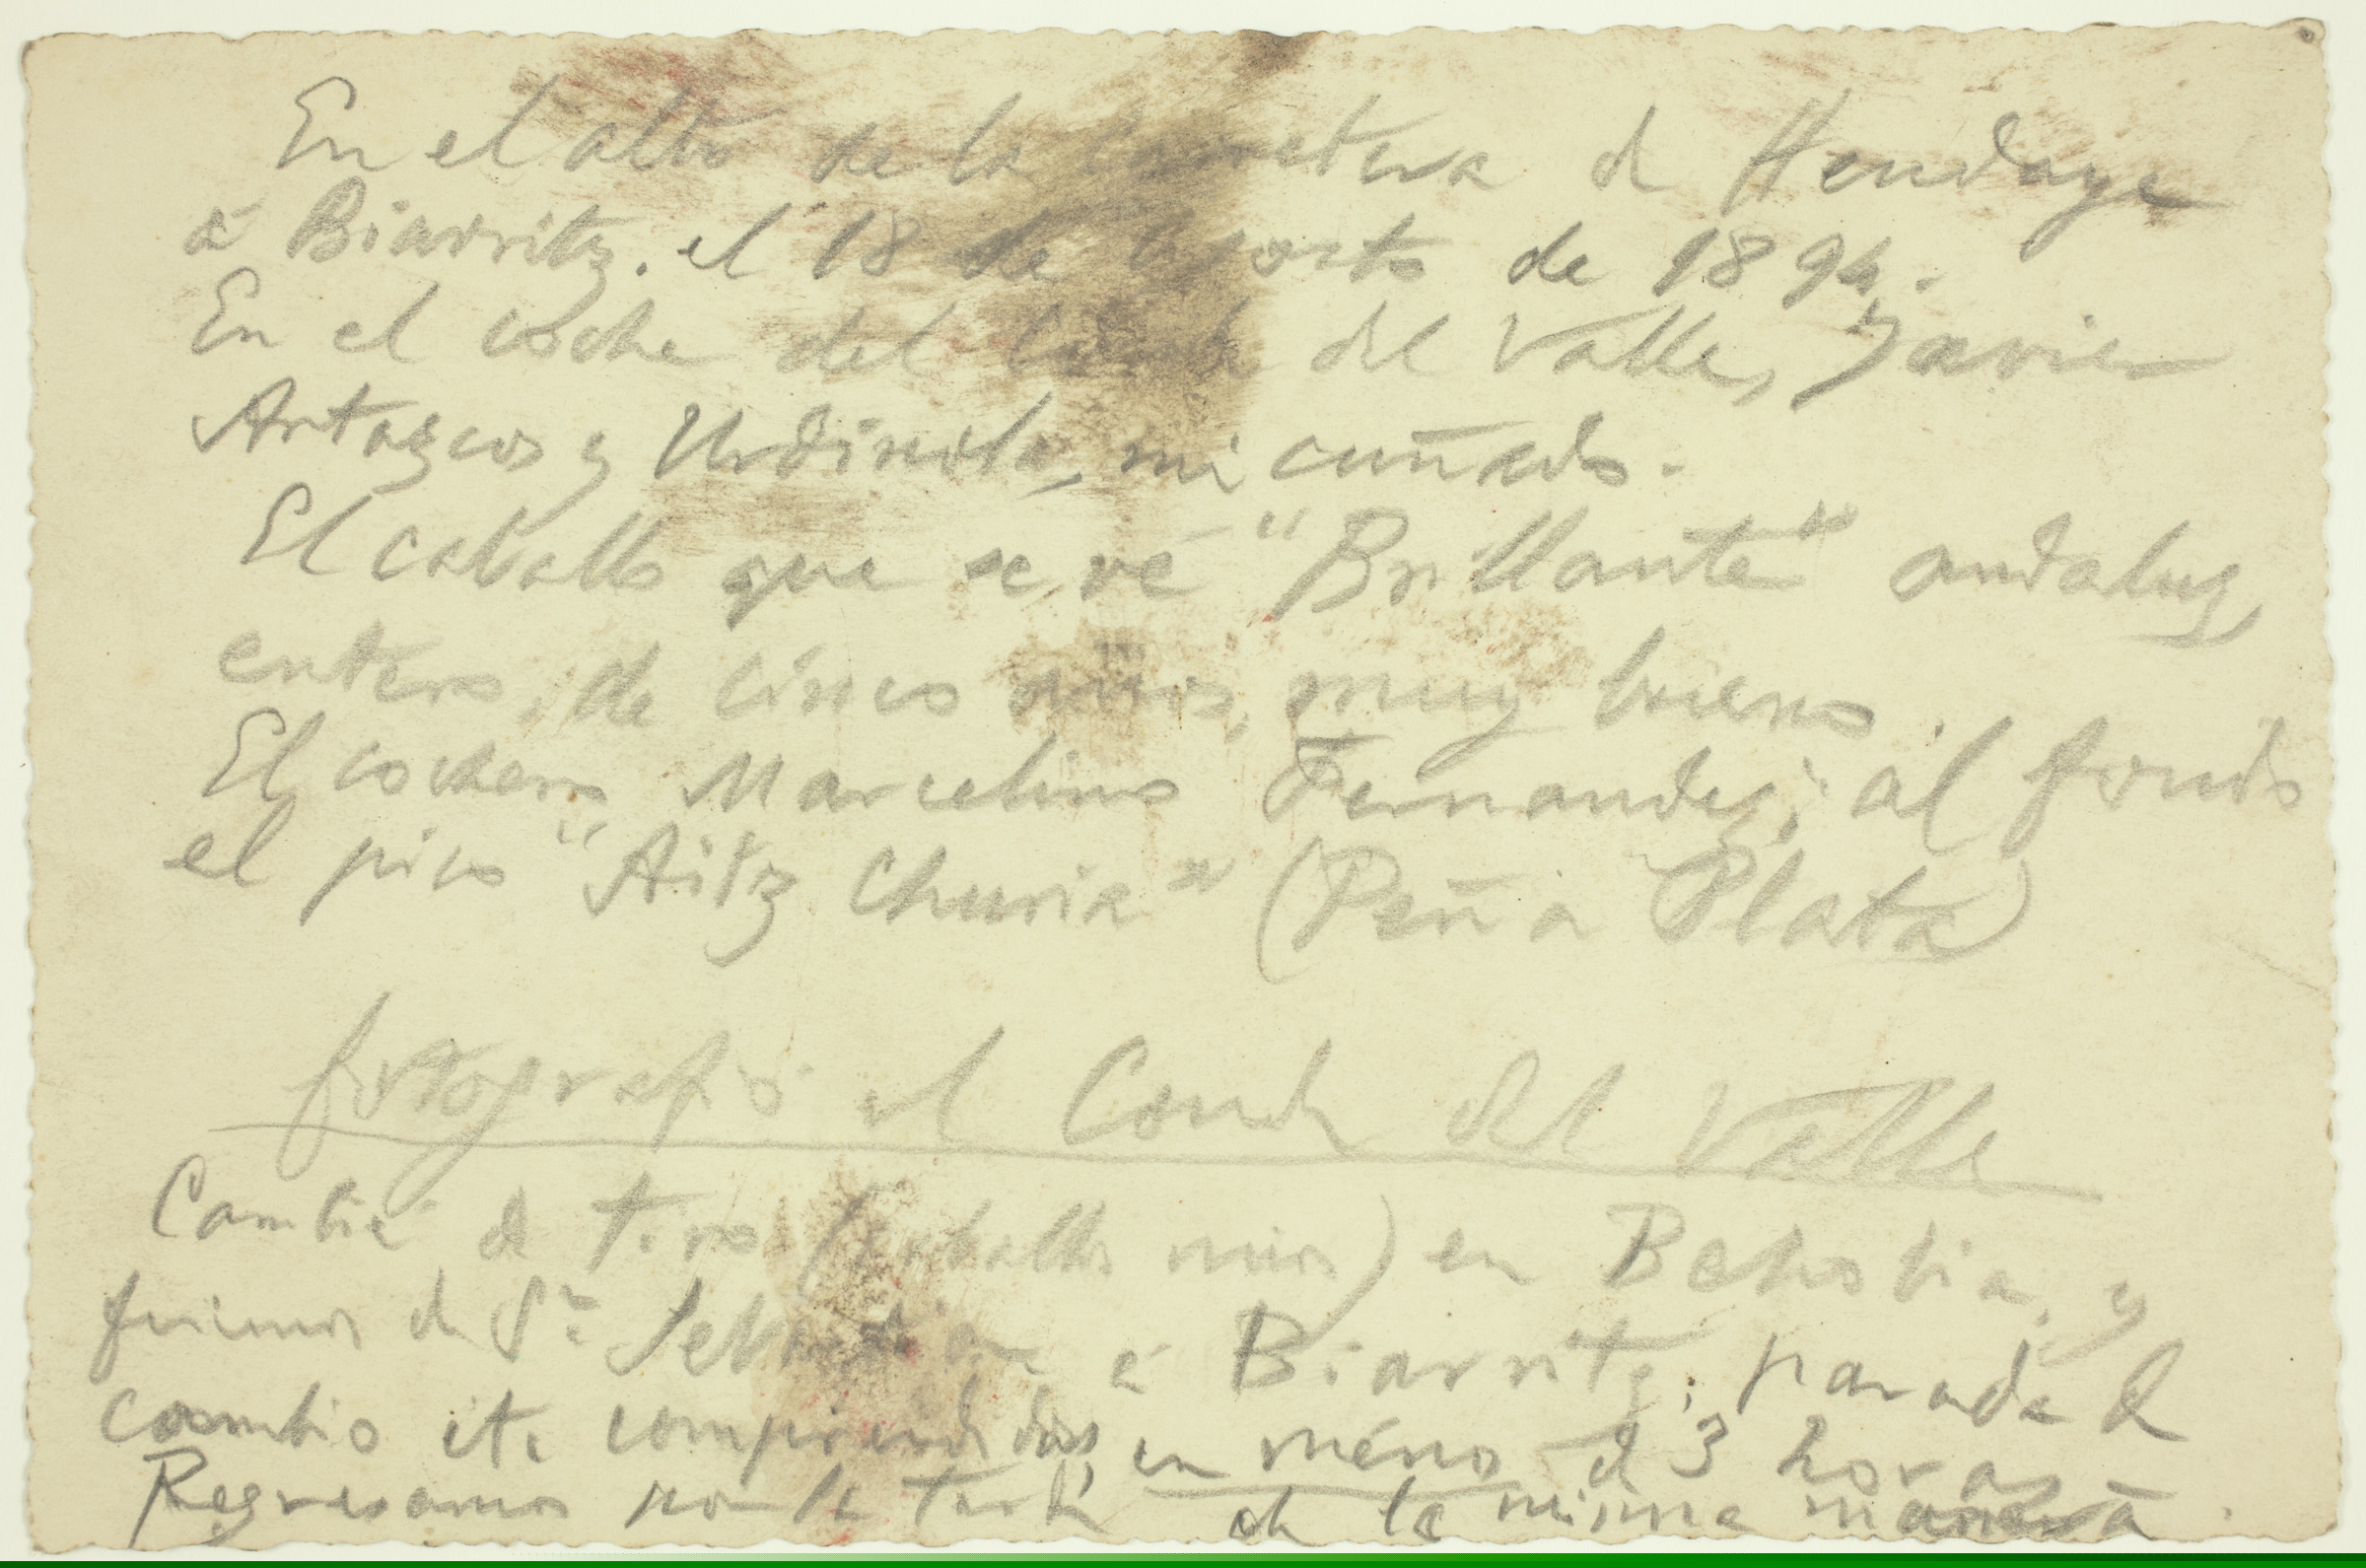 En el alto de la carretera de Hendaye
á Biarritz. el 18 de Agosto de 1894.
En el coche del Conde del Valle, y Javier
Artazcos y Urdinola, mi cuñado.
El caballo que se vé "Brillante" andaluz,
entero, de cinco años, muy bueno.
El cochero Marcelino Fernandez; al fondo
el pico "Aitz Churia" (Peña Plata)
fotografió el Conde del Valle
Cambié de tiro (caballos mios) en Behobia, y
fuimos de Sn Sebastian á Biarritz, parada de
cambio etc comprendidas, en ménos de 3 horas
Regresamos por la tarde de la misma manera.